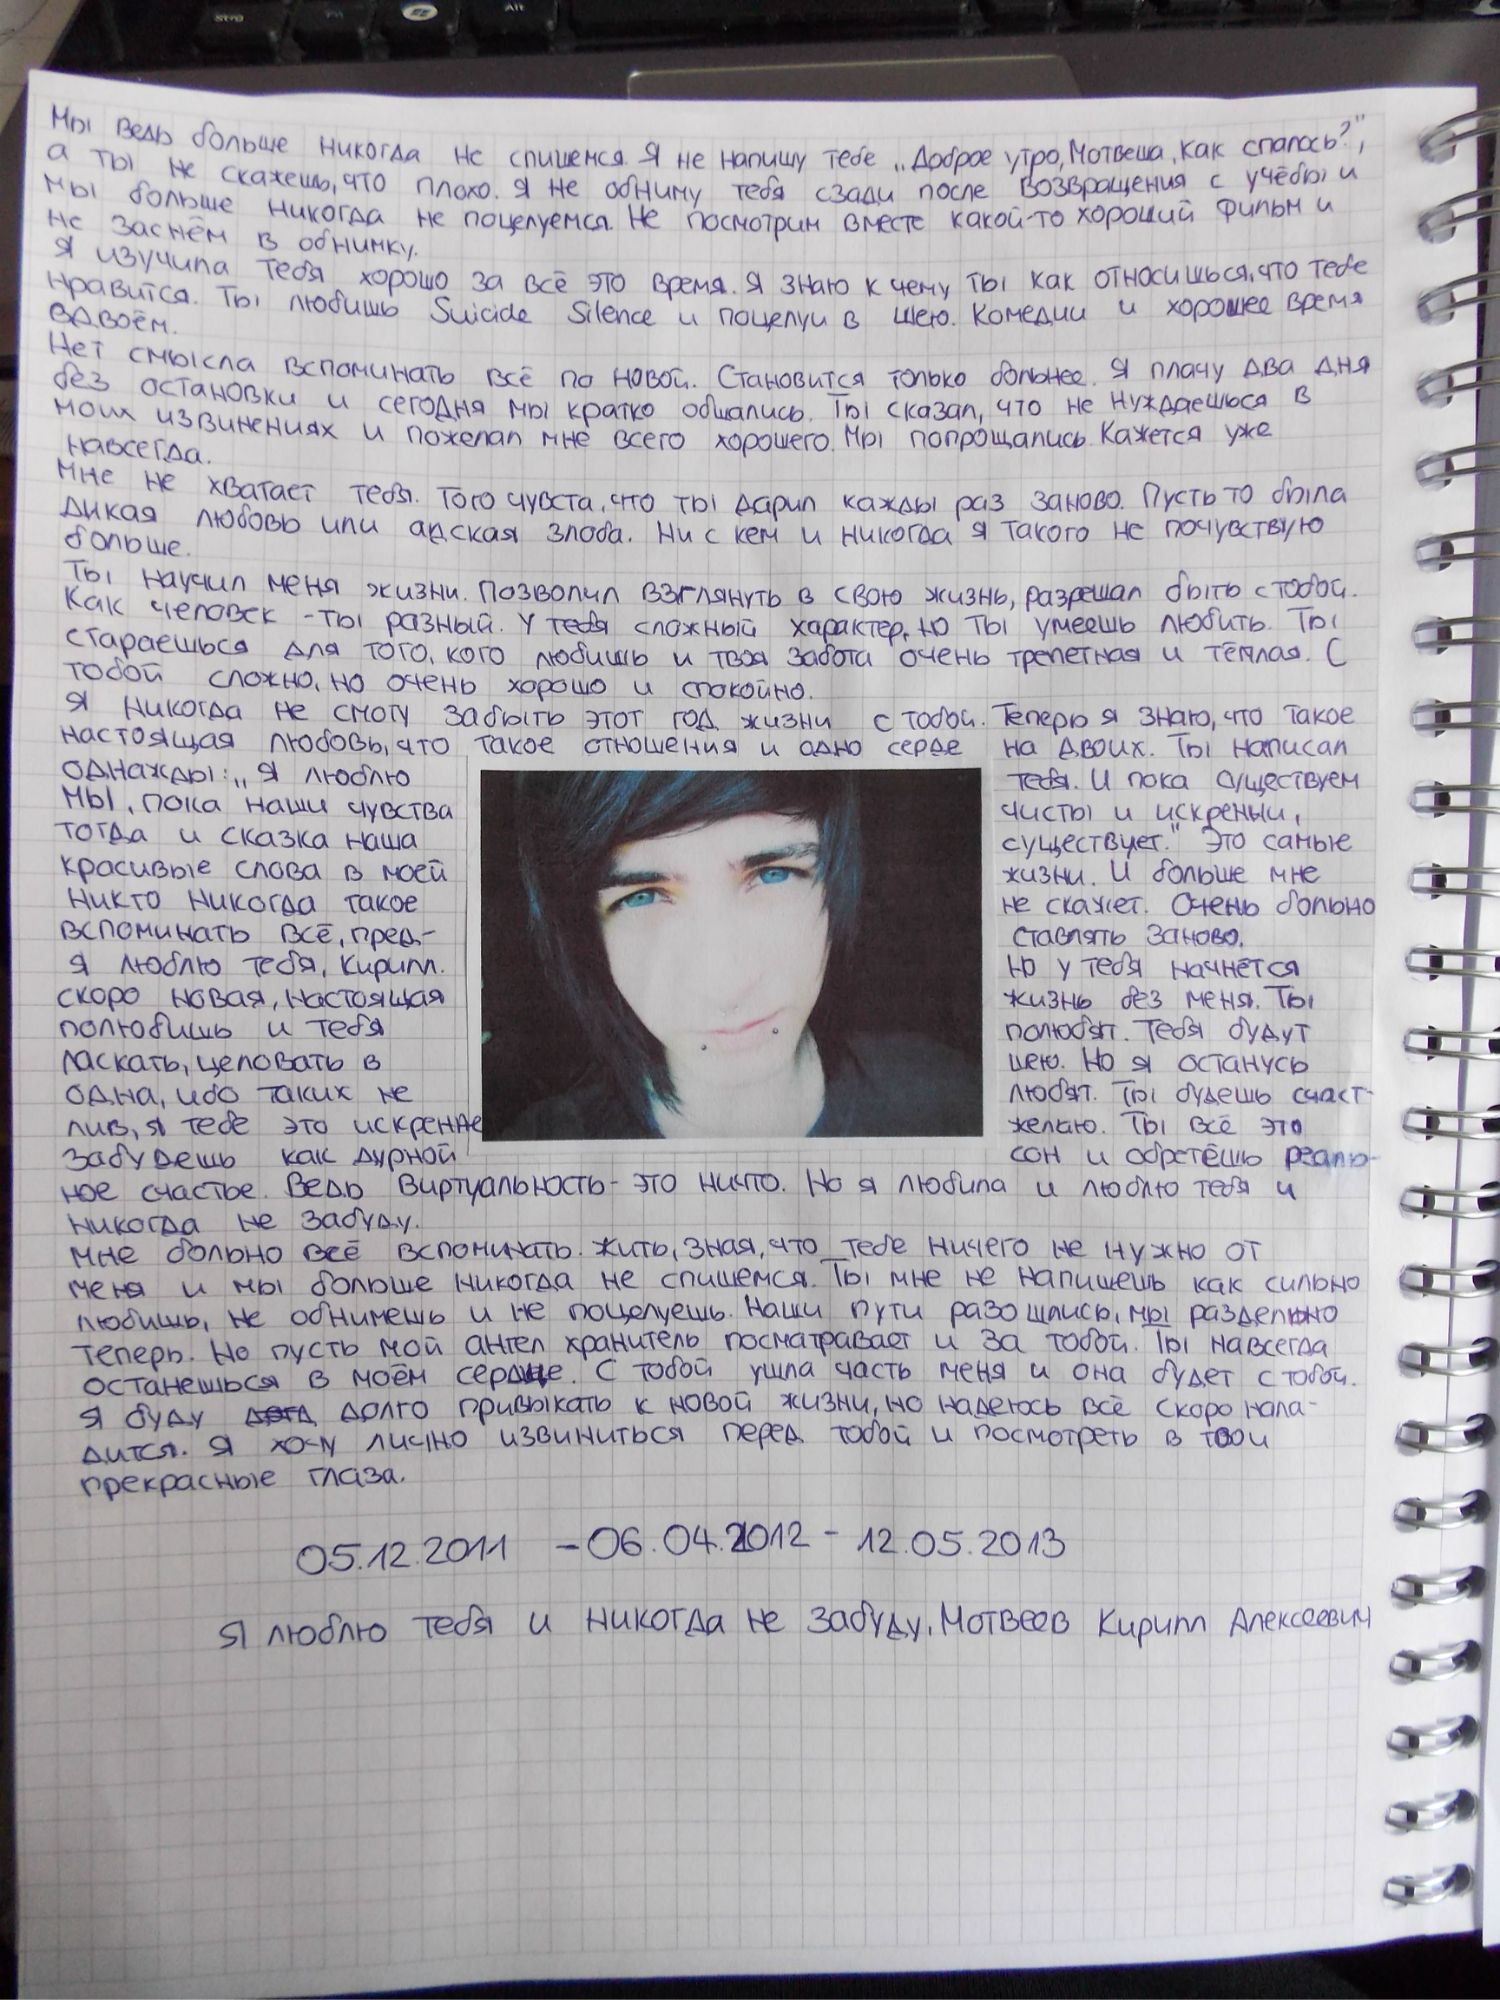 Strg
Fn
Alt
Мы ведь больше никогда не спишемся. Я не напишу тебе „Доброе утро, Мотвеша, как спалось?",
а ты не скажешь, что плохо. Я не обниму тебя сзади после возвращения с учёбы и
мы больше никогда не поцелуемся. Не посмотрим вместе какой-то хороший фильм и
не заснём в обнимку.
Я изучила тебя хорошо за всё это время. Я знаю к чему ты как относишься, что тебе
нравится. Ты любишь Suicide Silence и поцелуи в шею. Комедии и хорошее время
вдвоём.
Нет смысла вспоминать всё по новой. Становится только больнее. Я плачу два дня
без остановки и сегодня мы кратко общались. Ты сказал, что не нуждаешься в
моих извинениях и пожелал мне всего хорошего. Мы попрощались. Кажется уже
навсегда.
Мне не хватает тебя. Того чувста, что ты дарил кажды раз заново. Пусть то была
дикая любовь или адская злоба. Ни с кем и никогда я такого не почувствую
больше.
Ты научил меня жизни. Позволил взглянуть в свою жизнь, разрешал быть с тобой.
Как человек - ты разный. У тебя сложный характер, но ты умеешь любить. Ты
стараешься для того, кого любишь и твоя забота очень трепетная и тёплая. С
тобой сложно, но очень хорошо и спокойно.
Я никогда не смогу забыть этот год жизни с тобой. Теперь я знаю, что такое
настоящая любовь, что такое отношения и одно серде на двоих. Ты написал
однажды: „Я люблю тебя. И пока существуем
мы, пока наши чувства чисты и искреньи,
тогда и сказка наша существует." Это самые
красивые слова в моей жизни. И больше мне
никто никогда такое не скажет. Очень больно
вспоминать всё, пред- ставлять заново.
Я люблю тебя, Кирилл. Но у тебя начнётся
скоро новая, настоящая жизнь без меня. Ты
полюбишь и тебя полюбят. Тебя будут
ласкать, целовать в шею. Но я останусь
одна, ибо таких не любят. Ты будешь счаст-
лив, я тебе это искренне желаю. Ты всё это
забудешь как дурной сон и обретёшь реаль-
ное счастье. Ведь виртуальность - это ничто. Но я любила и люблю тебя и
никогда не забуду.
Мне больно всё вспоминать. Жить, зная, что тебе ничего не нужно от
меня и мы больше никогда не спишемся. Ты мне не напишешь как сильно
любишь, не обнимешь и не поцелуешь. Наши пути разошлись, мы раздельно
теперь. Но пусть мой ангел хранитель посматравает и за тобой. Ты навсегда
останешься в моём сердце. С тобой ушла часть меня и она будет с тобой.
Я буду долго привыкать к новой жизни, но надеюсь всё скоро нала-
дится. Я хочу лично извиниться перед тобой и посмотреть в твои
прекрасные глаза.
05.12.2011 - 06.04.2012 - 12.05.2013
Я люблю тебя и никогда не забуду, Мотвеев Кирилл Алексеевич